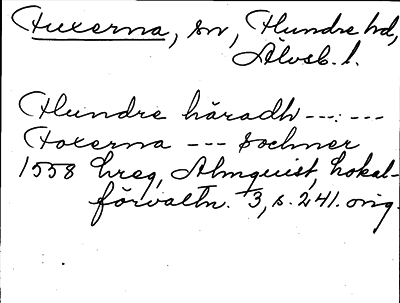 Fuxerna, sn, Flundre hd,
Älvsb. l.
Flundre häradh --- ---
Foxerna --- sochner
1558 hreg, Almquist, Lokal-
förvaltn. 3, s. 241. orig.